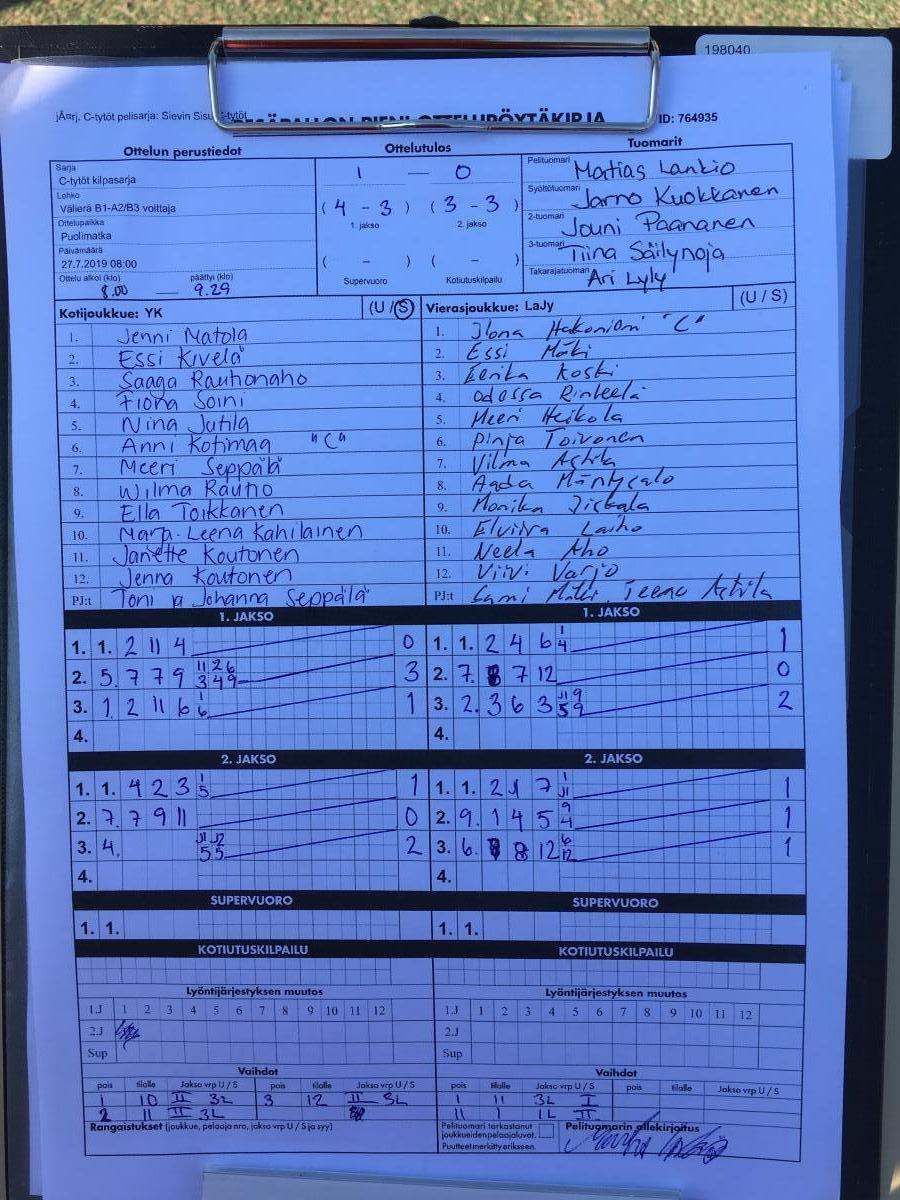 198040
jÃ¤rj. C-tytöt pelisarja: Sievin Sisu C-tytöt
PESÄPALLON PIENI OTTELUPÖYTÄKIRJA ID: 764935
Ottelun perustiedot Ottelutulos Tuomarit
Sarja
C-tytöt kilpasarja
Lohko
Välierä B1-A2/B3 voittaja
Ottelupaikka
Puolimatka
Päivämäärä
27.7.2019 08:00
Ottelu alkoi (klo) päättyi (klo)
8.00 — 9.29
1 — 0
( 4 - 3 ) ( 3 - 3 )
1. jakso 2. jakso
( - ) ( - )
Supervuoro Kotiutuskilpailu
Pelituomari Matias Lankio
Syöttötuomari Jarno Kuokkanen
2-tuomari Jouni Paananen
3-tuomari Tiina Säilynoja
Takarajatuomari Ari Lyly
Kotijoukkue: YK (U / S)
1. Jenni Matola
2. Essi Kivelä
3. Saaga Rauhonaho
4. Fiona Soini
5. Nina Jutila
6. Anni Kotimaa "C"
7. Meeri Seppälä
8. Wilma Rauho
9. Ella Toikkanen
10. Marja-Leena Kahilainen
11. Janette Koutonen
12. Jenna Koutonen
PJ:t Toni ja Johanna Seppälä
Vierasjoukkue: LaJy (U / S)
1. Ilona "C"
2. Essi Mäki
3. Eerika Koski
4. Rinteelä
5. Meeri Heikola
6. Pinja Toivonen
7. Vilma
8. Aada
9. Monika
10. Elviira Laiho
11. Neela Aho
12. Viivi Varjo
PJ:t Sami Mäki, Teemu
1. JAKSO
1. 1. 2 11 4 0
2. 5. 7 7 9 11 2 6 3 4 9 3
3. 1. 2 11 6 1 6 1
4.
2. JAKSO
1. 1. 4 2 3 1 5 1
2. 7. 7 9 11 0
3. 4. 11 12 5 5 2
4.
SUPERVUORO
1. 1.
KOTIUTUSKILPAILU
Lyöntijärjestyksen muutos
1.J 1 2 3 4 5 6 7 8 9 10 11 12
2.J
Sup
Vaihdot
pois tilalle Jakso vrp U / S pois tilalle Jakso vrp U / S
1 10 II 3L 3 12 II 3L
2 11 II 3L
Rangaistukset (joukkue, pelaaja nro, jakso vrp U / S ja syy)
1. JAKSO
1. 1. 2 4 6 1 4 1
2. 7. 7 12 0
3. 2. 3 6 3 11 9 5 9 2
4.
2. JAKSO
1. 1. 2 1 7 1 11 1
2. 9. 1 4 5 9 4 1
3. 6. 8 12 6 12 1
4.
SUPERVUORO
1. 1.
KOTIUTUSKILPAILU
Lyöntijärjestyksen muutos
1.J 1 2 3 4 5 6 7 8 9 10 11 12
2.J
Sup
Vaihdot
pois tilalle Jakso vrp U / S pois tilalle Jakso vrp U / S
1 11 3L I
11 1 1L II
Pelituomari tarkastanut
joukkueiden pelaajaluvat.
Puutteet merkitty erikseen.
Pelituomarin allekirjoitus